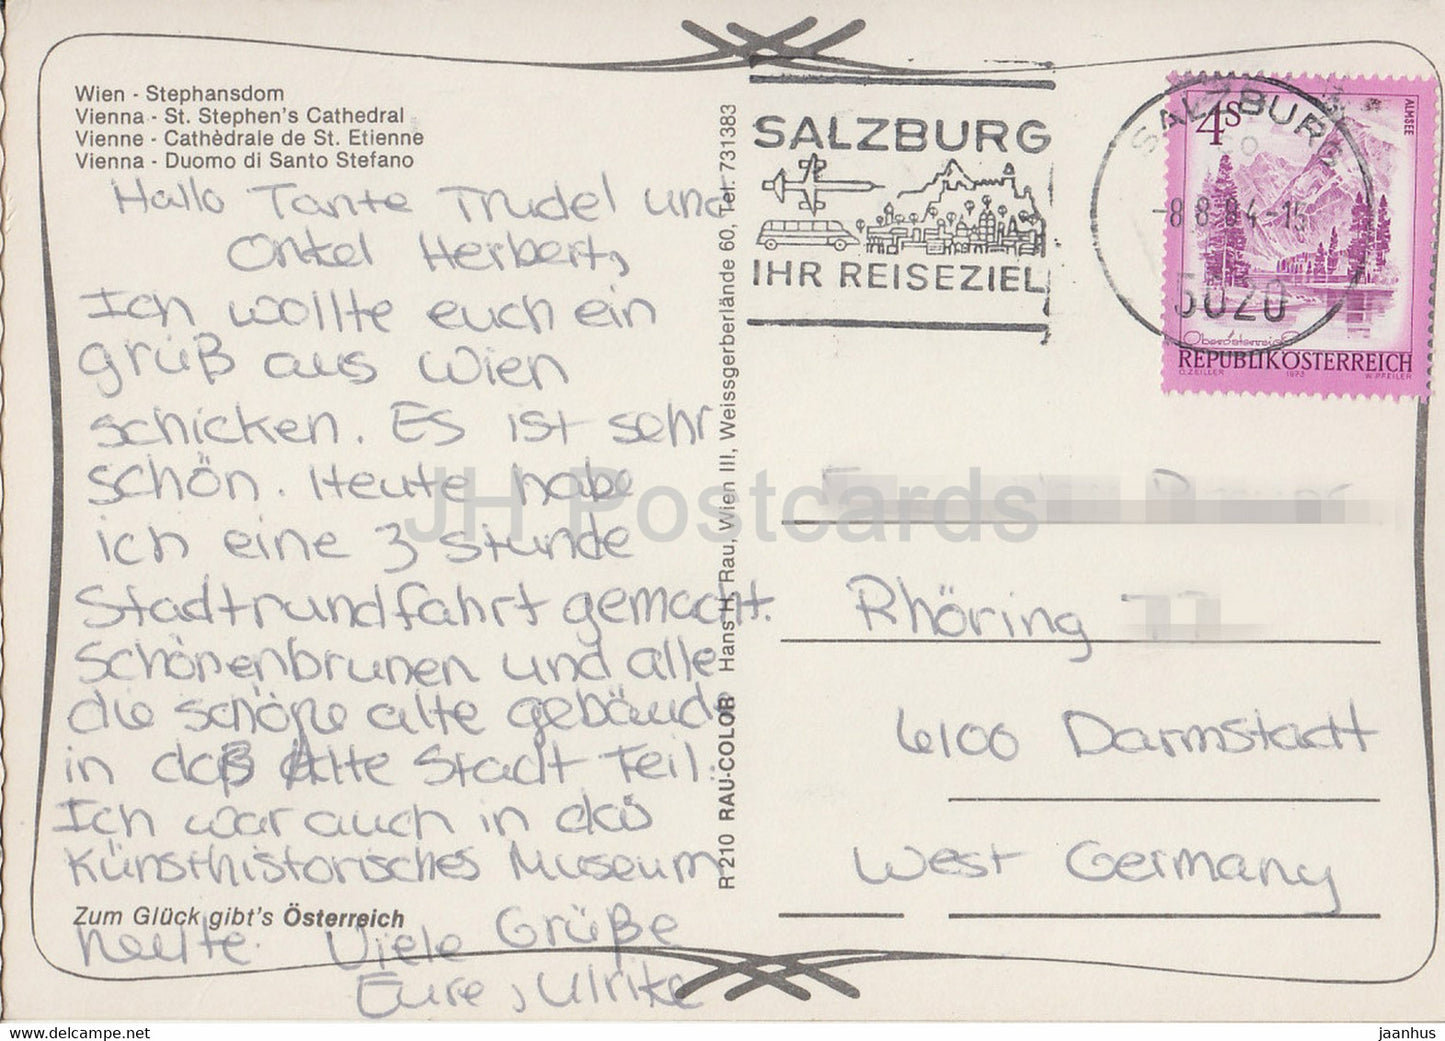 Wien - Stephansdom
Vienna - St. Stephen's Cathedral
Vienne - Cathèdrale de St. Etienne
Vienna - Duomo di Santo Stefano
Hallo Tante Trudel und
Onkel Herbert,
Ich wollte euch ein
grüß aus Wien
schicken. Es ist sehr
schön. Heute habe
ich eine 3 stunde
Stadtrundfahrt gemacht.
Schönenbrunen und alle
die schöne alte gebäude
in daß Alte Stadt Teil.
Ich war auch in das
Künsthistorisches Museum
Zum Glück gibt's Österreich
heute. Viele Grüße
Eure, Ulrike
R 210 RAU-COLOR Hans H. Rau, Wien III, Weissgerberlände 60, Tel. 731383
SALZBURG
IHR REISEZIEL
SALZBURG
-8.8.84-15
5020
4S
ALMSEE
Oberösterreich
REPUBLIK ÖSTERREICH
O. ZEILLER 1973 W. PFEILER
Rhöring
6100 Darmstadt
West Germany
JH Postcards
www.delcampe.net
jaanhus